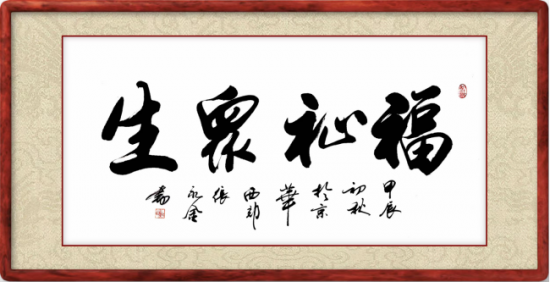 福祉眾生
甲辰
初秋
於京
華
西部
張
永金
書